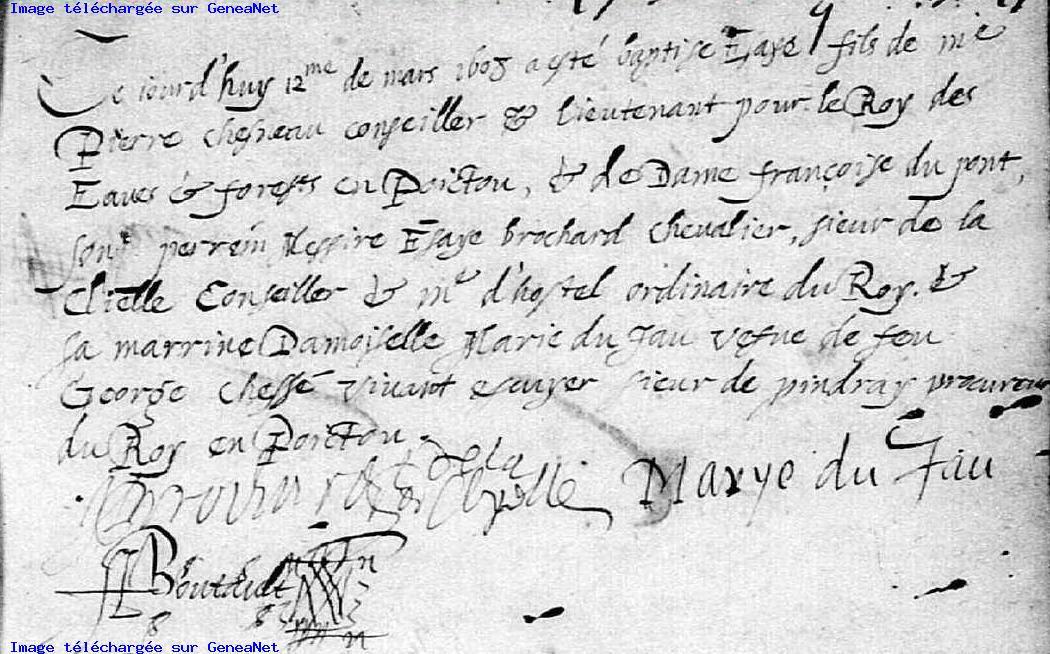 Image téléchargée sur GeneaNet
Ce iourd'huy 12me de mars 1608 a esté baptisé Esaye fils de me
Pierre Chesneau conseiller & lieutenant pour le Roy des
Eaues & forests en Poictou, & de Dame françoise du pont,
son perrein Messire Esaye brochard chevalier, sieur de la
Clielle Conseiller & me d'hostel ordinaire du Roy. &
sa marrine Damoiselle Marie du Fau vefve de feu
George Chessé vivant escuyer sieur de pindray procureur
du Roy en Poictou.
Marye du Fau
Boutault
Image téléchargée sur GeneaNet